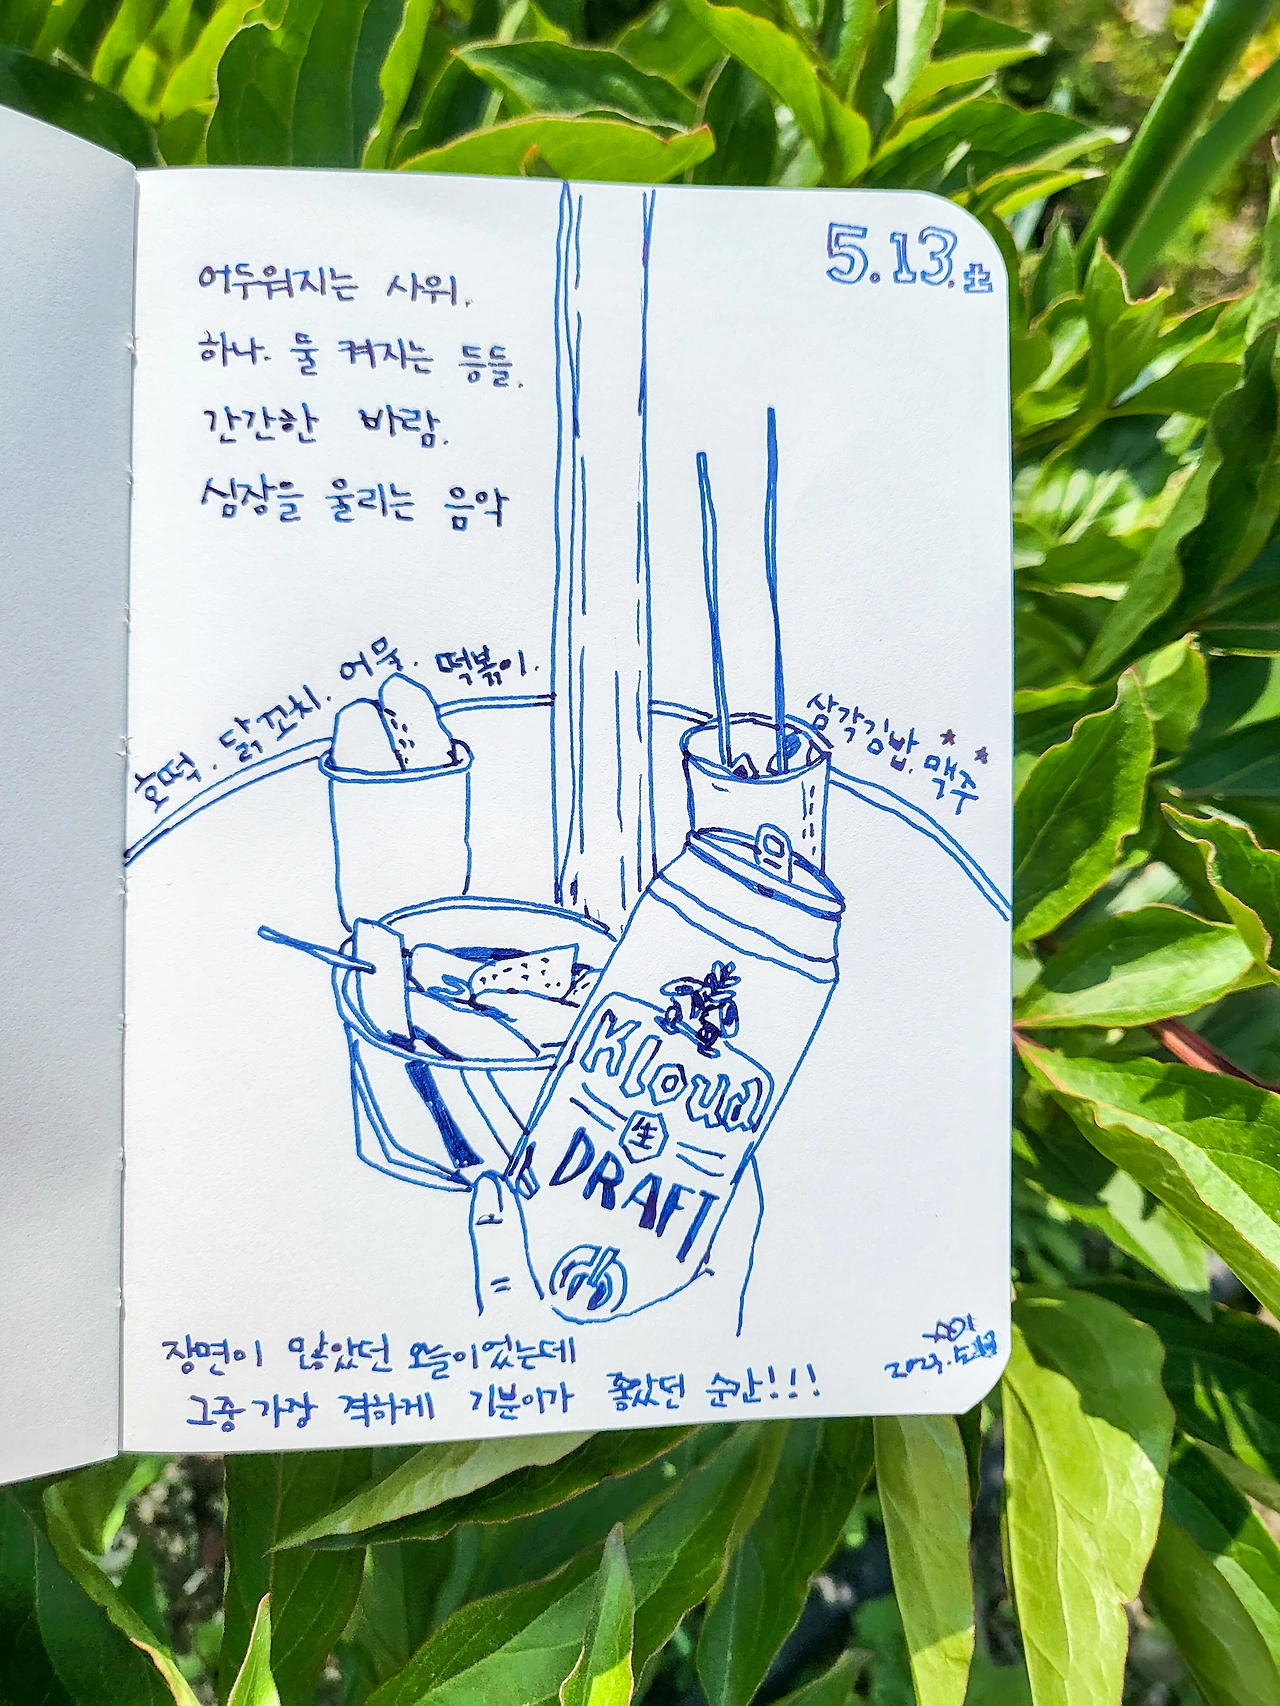 5.13.土
어두워지는 사위.
하나. 둘 켜지는 등들.
간간한 바람.
심장을 울리는 음악
호떡. 닭꼬치. 어묵. 떡볶이.
삼각김밥. 맥주
Kloud
生
DRAFT
장면이 많았던 오늘이었는데
그중 가장 격하게 기분이가 좋았던 순간!!!
2023.